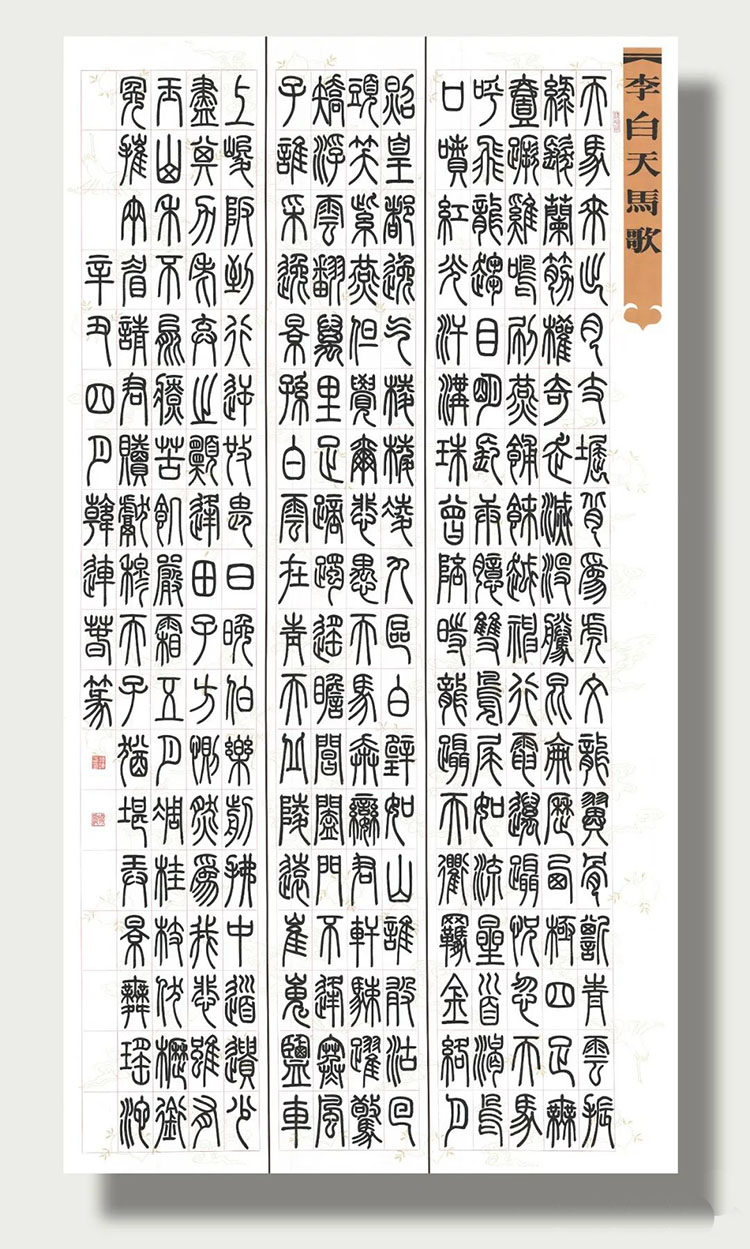 李白天馬歌
天馬來出月支堀背爲虎文龍翼骨嘶青雲振
綠髮蘭筋權奇走滅没騰昆侖歷西極四足無
壹蹶雞鳴刷燕餔秣越神行電邁躡怳忽天馬
呼飛龍趨目明長庚臆雙鳧尾如流星首渴烏
口噴紅光汗溝珠曾陪時龍躡天衢羈金絡月
照皇都逸气棱棱凌九區白璧如山誰敢沽回
頭笑紫燕但覺爾悲愚天馬奔戀君軒駷躍驚
矯浮雲翻萬里足躑躅遙瞻閶闔門不逢寒風
子誰采逸景孫白雲在青天丘陵遠崔嵬鹽車
上峻阪到行逆施畏日晚伯樂翦拂中道遺少
盡其力老棄之願逢田子方惻然爲我悲雖有
玉山禾不能療苦飢嚴霜五月凋桂枝伏櫪銜
冤摧兩眉請君贖獻穆天子猶堪弄景舞瑤池
辛丑四月韓連篆